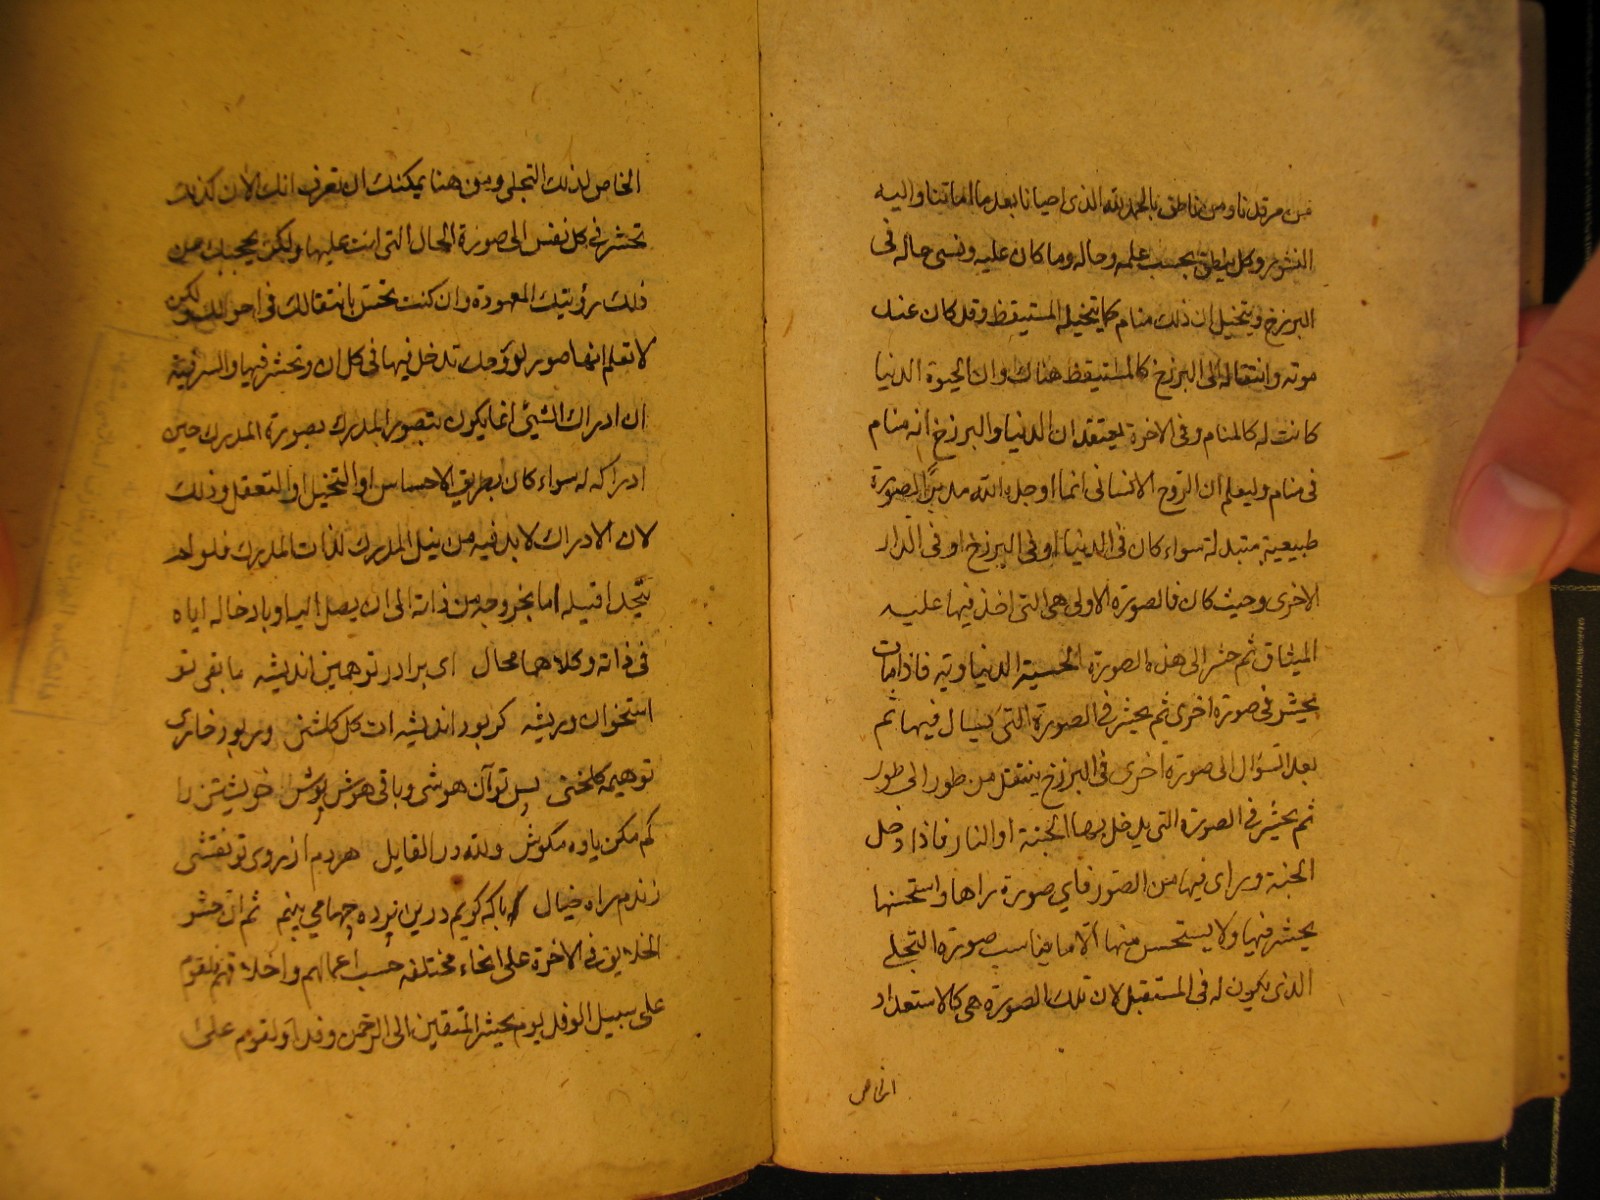 من مرقدنا ومن ناطق بالحمد لله الذى احيانا بعد ما اماتنا واليه
النشور وكل ينطق بحسب علمه وحاله وما كان عليه ونسى حاله فى
البرزخ ويتخيل ان ذلك منام كما يتخيله المستيقظ وقد كان عند
موته وانتقاله الى البرزخ كالمستيقظ هناك وان الحيوة الدنيا
كانت له كالمنام وفى الاخرة يعتقد ان الدنيا والبرزخ انه منام
فى منام وليعلم ان الروح الانسانى انما اوجده الله مدبرًا لصورة
طبيعية متبدلة سواء كان فى الدنيا او فى البرزخ او فى الدار
الاخرى وحيث كان فالصورة الاولى هى التى اخذ فيها عليه
الميثاق ثم حشر الى هذه الصورة الحسية الدنياوية فاذا مات
يحشر فى صورة اخرى ثم يحشر فى الصورة التى يسال فيها ثم
بعد السؤال الى صورة اخرى فى البرزخ ينتقل من طور الى طور
ثم يحشر فى الصورة التى يدخل بها الجنة او النار فاذا دخل
الجنة وراى فيها من الصور فاي صورة راها واستحسنها
يحشر فيها ولا يستحسن منها الا ما يناسب صورة التجلے
الذى يكون له فى المستقبل لان تلك الصورة هى كالاستعداد
الخاص
الخاص لذلك التجلى ومن هنا يمكنك ان تعرف انك الان كذلك
تحشر فى كل نفس الى صورة الحال التى انت عليها ولكن يحجبك عن
ذلك رؤيتك المعهودة وان كنت تحس بانتقالك فى احوالك ولكن
لا تعلم انها صور لروحك تدخل فيها فى كل ان وتحشر فيها والسر فيه
ان ادراك الشيئ انما يكون بتصور المدرك بصورة المدرك حين
ادراكه له سواء كان بطريق الاحساس او التخيل او التعقل وذلك
لان الادراك لا بد فيه من نيل المدرك لذات المدرك فلو لم
يتحد اقبله اما بخروجه من ذاته الى ان يصل اليه او بادخاله اياه
فى ذاته وكلاهما محال اى برادر تو همين انديشه ما بقى تو
استخوان وريشه كر بود انديشه ات كل كلشنى ور بود خارى
تو هيمه كلخنى پس تو آن هوشى وباقى هوش پوش خويشتن را
كم مكن ياوه مكوش ولله در القايل هر دم از روى تو نقشى
زندم راه خيال با كه كويم در اين پرده چها مى بينم ثم ان حشر
الخلايق فى الاخرة على انحاء مختلفه حسب اعمالهم واخلاقهم فلقوم
على سبيل الوفد يوم يحشر المتقين الى الرحمن وفدا ولقوم على